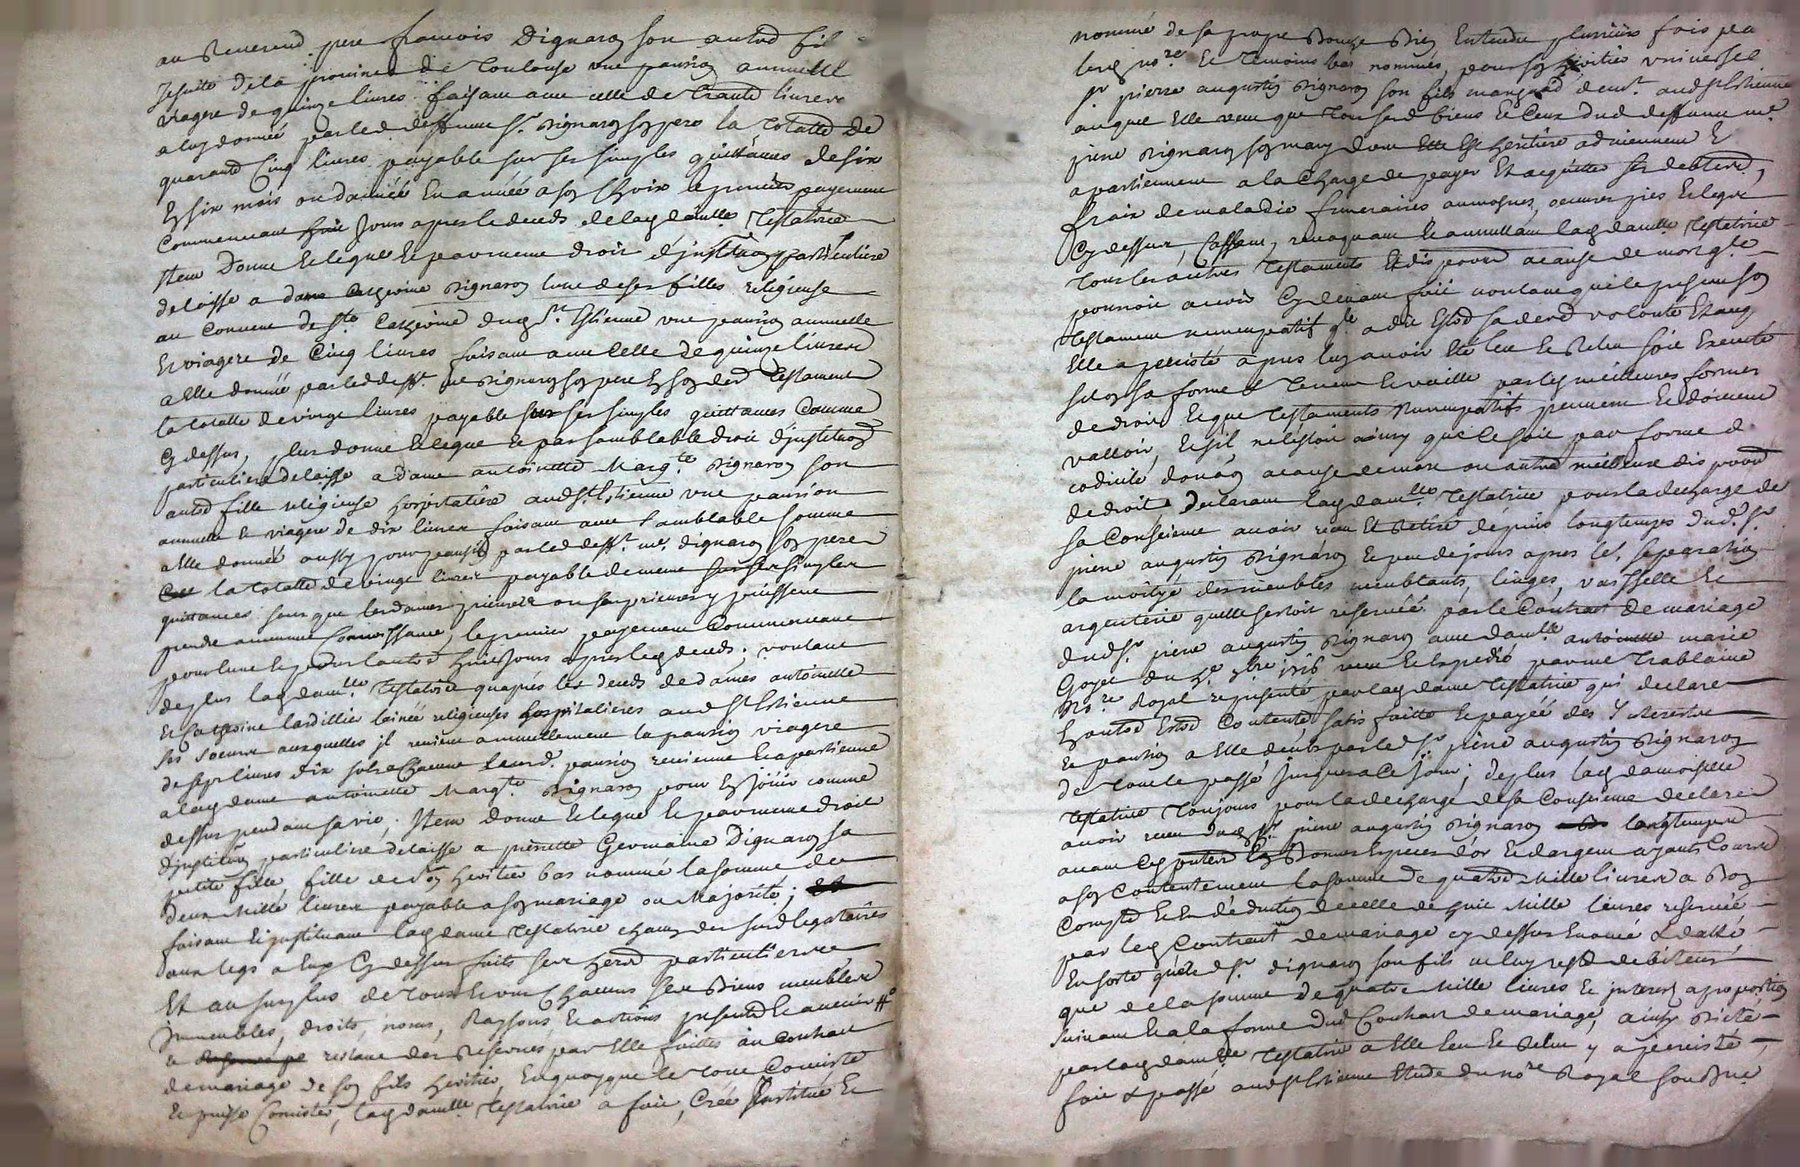 au Reverend pere francois Dignaron son autre fil
Jesuite dela province de Toulouse une pansion annuelle
viagere de quinze livres faisant avec celle de trante livres
a luy donnée par led deffunt sr. Dignaron son pere la totalle de
quarante cinq livres payable sur ses simples quittances de six
en six mois ou d'année en année a son choix le premier payement
commencant huit jours apres le deceds de lad damlle Testatrice
Item Donne et legue et par meme droit d'jnstitution particuliere
delaisse a dame Catherine Dignaron lune de ses filles religieuse
au Convent de Ste Catherine dud St Estienne une pansion annuelle
et viagere de Cinq livres faisant avec Celle de quinze livres
a elle donnée par led defft. me Dignaron son pere en son der Testament
la totalle de vingt livres payable sur ses simples quittances Comme
Cy dessus, plus donne et legue et par samblable droit d'jnstitution
particuliere delaisse a dame antoinette Margte Dignaron son
autre fille religieuse hospitaliere aud St Estienne une pansion
annuelle et viagere de dix livres faisant avec samblable somme
a elle donnée aussy pour pansion par led defft. me. dignaron son pere
la totalle de vingt livres payable de meme sur ses simples
quittances sans que les dames prieures ou sa prieure y puissent
prendre aucune Connoissance, le premier payement Commencant
pour lune et pour lautre huit jours apres led deceds. voulant
de plus lad damlle Testatrice qu'apres les deceds de dames antoinette
et Catherine lardillier lainée religieuses hospitalieres aud St Estienne
ses soeurs auxquelles jl revient annuellement la pansion viagere
de sept livres dix sols a Chacune lesd. pansion revienne et apartienne
a lad dame antoinette Margte Dignaron pour en jouir comme
dessus pendant sa vie; Item donne et legue et par meme droit
d'jnstitution particuliere delaisse a pierrette Germaine Dignaron sa
petite fille fille de son heritier bas nommé la somme de
deux Mille livres payable a son mariage ou Majorité;
faisant et jnstituant lad dame Testatrice chacun des susd legataires
aux legs a eux Cy dessus faits ses herers particuliers
Et au surplus de tous et uns Chacuns ses Biens meubles
Immeubles, droits, noms, Raysons et actions presents et avenir
a restant des Reserves par Elle faittes au contrat
de mariage de son fils heritier, En quoy que le tout Consiste
et puisse Consister, lad damlle Testatrice a fait, Créé Institué et
nommé de sa propre Bouche Bien Entendu plusieurs fois par
led nore Et Temoins bas nommés, pour son heritier universel
sr. pierre augustin Dignaron son fils marchand demt. aud St Estienne
auquel Elle veut que tous sesd biens et Ceux dud deffunt me
pierre Dignaron son mary dont Elle Est heritiere adviennent et
apartiennent a la Charge de payer Et acquitter ses debtes,
frais de maladie funeraires aumosnes oeuvres pies et legs
Cy dessus, Cassant, revoquant et annullant lad damlle Testatrice
tous les autres Testaments et dispositions a cause de mort qlle
pourroit avoir Cy devant fait voulant que le present son
testament nuncupatif qle a dit Estre sa derre volonté Et auq
Elle a persisté apres luy avoir Eté leu et Releu soit Executé
selon sa forme et Teneur Et vaille par les meilleures formes
de droit, Et que Testaments Nuncupatifs peuvent et doivent
valloir, et s'il ne l'estoit ainsy que ce soit par forme de
codicile donation a cause de mort ou autre meilleure disposition
de droit Declarant lad damlle Testatrice pour la decharge de
sa Conscience avoir receu Et Retiré depuis longtemps dud. sr.
pierre augustin Dignaron et peu de jours apres les separation
la moityé des meubles meublants, linges, vaisselle et
argenterie quelle sestoit reservée par le Contrat de mariage
dud sr. pierre augustin Dignaron avec damlle antoinette marie
Goyet du 5e. xbre 1716 receu et Expedié par me Trablaine
nore Royal represanté par lad dame Testatrice qui declare
En outre Estre Contente, satisfaitte et payée des Interests
et pansion a Elle deubs par led sr pierre augustin Dignaron
de tout le passé jusques a ce jour; de plus lad damoiselle
Testatrice toujours pour la decharge de sa Conscience declare
avoir receu dud sr. pierre augustin Dignaron longtemps
avant Ces presentes En Bonnes Especes d'or et d'argent ayants Cours
a son Contentement la somme de quatre Mille livres a Bon
Compte et En deduction de celle de huit Mille livres reservée
par led Contrat de mariage cy dessus Enoncé & datté
En sorte que led sr. dignaron son fils ne luy reste debiteur
que de la somme de quatre Mille livres et jnterets a proportion
suivant Et a la forme dud Contrat de mariage, ainsy dicté
par lad damlle Testatrice a Elle leu et Releu y a persisté
fait & passé aud St Estienne Etude du nore Royal soubsigné